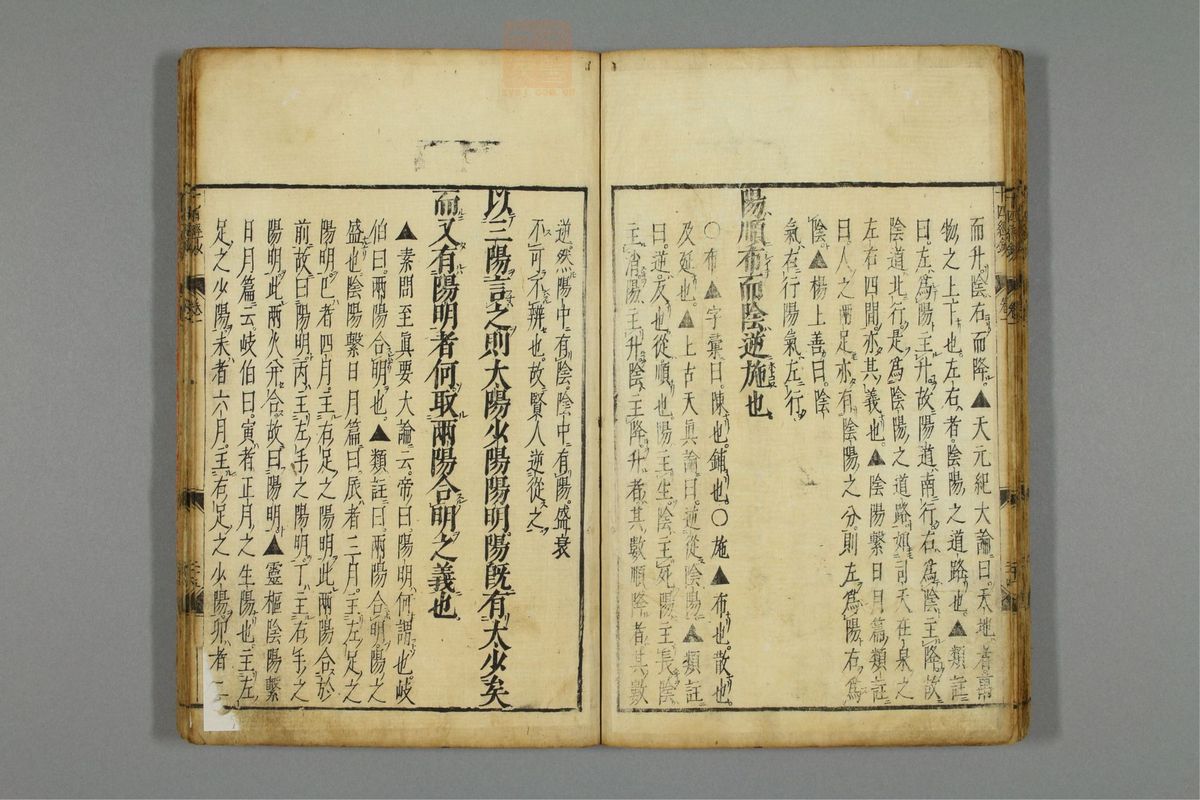 而升陰右而降▲天元紀大論曰天地者萬
物之上下也左右者陰陽之道路也▲類註
曰左爲陽主升故陽道南行右爲陰主降故
陰道北行是爲陰陽之道路如司天在泉之
左右四間亦其義也▲陰陽繫日月篇類註
曰人之兩足亦有陰陽之分則左爲陽右爲
陰▲楊上善曰陰
氣右行陽氣左行
陽順布而陰逆施也
○布▲字彙曰陳也鋪也○施▲布也散也
及延也▲上古天眞論曰逆從陰陽▲類註
曰逆反也從順也陽主生陰主死陽主長陰
主消陽主升陰主降升者其數順降者其數
逆然陽中有陰陰中有陽盛衰
不可不辨也故賢人逆從之
以三陽言之則太陽少陽陽明陽既有太少矣
而又有陽明者何取兩陽合明之義也
▲素問至眞要大論云帝曰陽明何謂也岐
伯曰兩陽合明也▲類註曰兩陽合明陽之
盛也陰陽繫日月篇曰辰者三月主左足之
陽明巳者四月主右足之陽明此兩陽合於
前故曰陽明丙主左手之陽明丁主右手之
陽明此兩火并合故曰陽明▲靈樞陰陽繫
日月篇云岐伯曰寅者正月之生陽也主左
足之少陽未者六月主右足之少陽卯者二